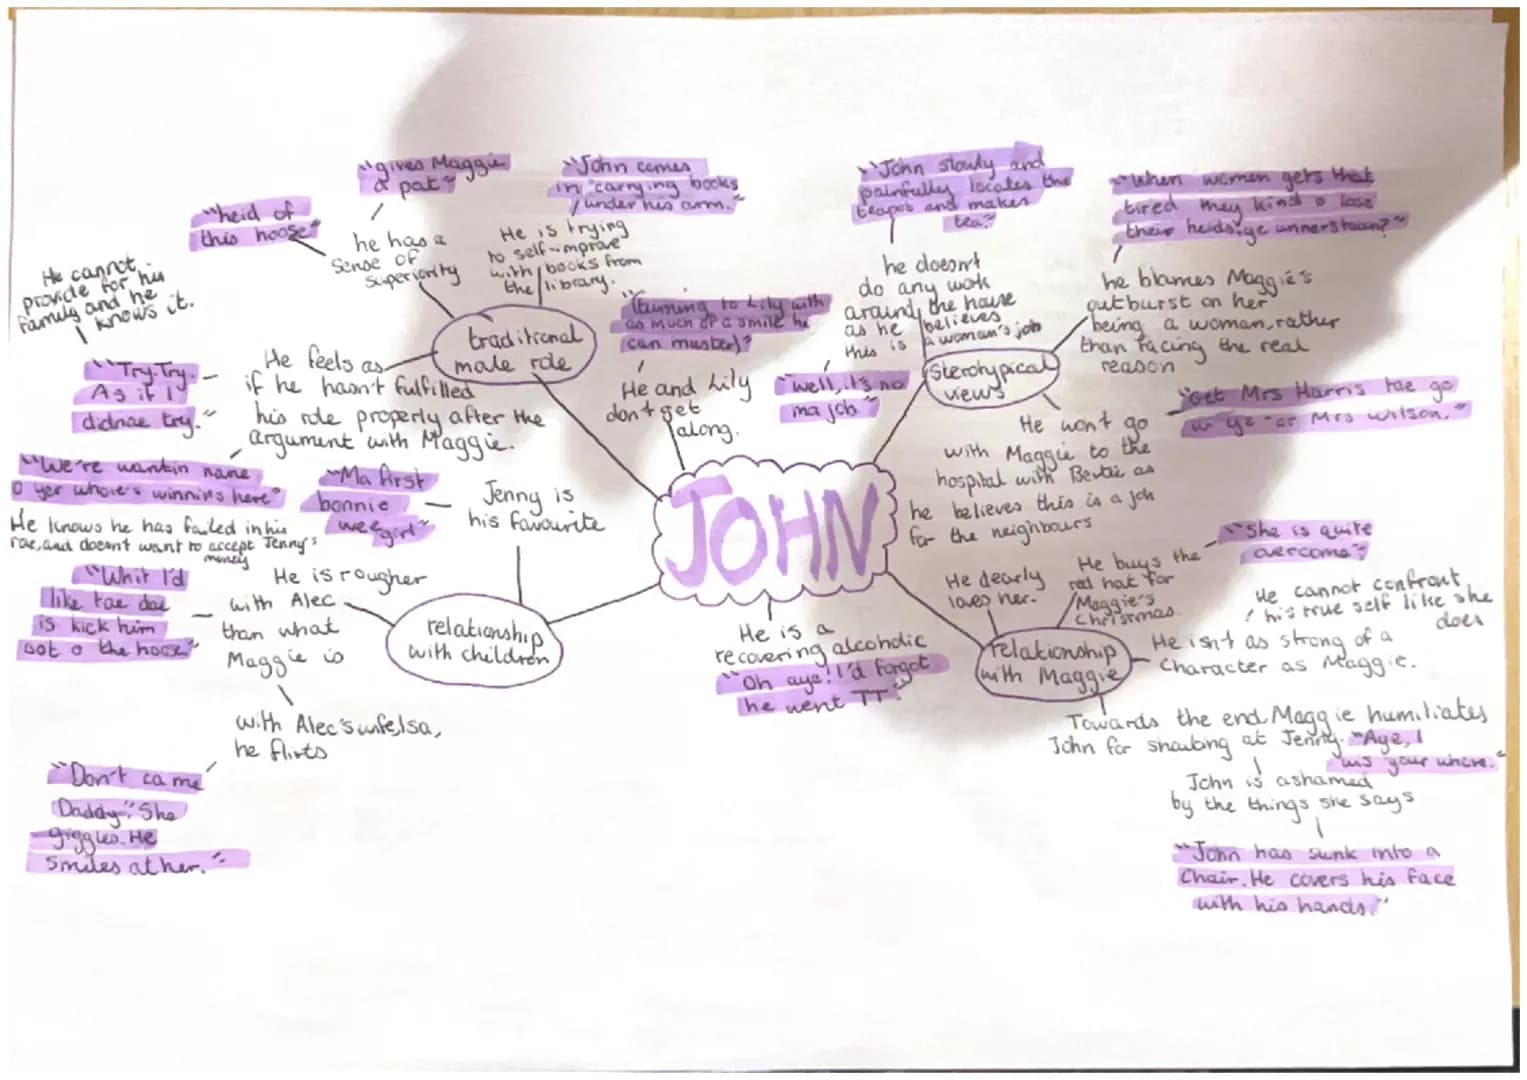 JOHN
traditional
male role
he has a
sense of
superiority
"gives Maggie
a pat"
"heid of
this hoose"
He is trying
to self-improve
with books from
the library.
"John comes
in, carrying books
under his arm."
He feels as
if he hasn't fulfilled
his role properly after the
argument with Maggie.
"Try. Try.
As if I
didnae try."
He cannot
provide for his
family and he
knows it.
"We're wantin nane
o yer whore's winnins here"
He knows he has failed in his
role, and doesnt want to accept Jenny's
money
He and Lily
don't get
along.
"(turning to Lily with
as much of a smile he
can muster)"
sterotypical
views
he doesn't
do any work
around the house
as he believes
this is a woman's job
"John slowly and
painfully locates the
teapot and makes
tea."
"well, it's no
ma job"
he blames Maggie's
outburst on her
being a woman, rather
than facing the real
reason
"When women gets that
tired they kind o lose
their heids, ye unnerstaun?"
He won't go
with Maggie to the
hospital with Bertie as
he believes this is a job
for the neighbours
"Get Mrs Harris tae go
wi ye - or Mrs Wilson."
relationship
with children
Jenny is
his favourite
"Ma first
bonnie
wee girl"
He is rougher
with Alec
than what
Maggie is
"Whit I'd
like tae dae
is kick him
oot o the hoose"
with Alec's wife, Isa,
he flirts
"Don't ca me
Daddy," She
giggles. He
smiles at her."
He is a
recovering alcoholic
"Oh aye! I'd forgot
he went TT"
relationship
with Maggie
He dearly
loves her.
He buys the
red hat for
Maggie's
Christmas.
"She is quite
overcome"
He isn't as strong of a
character as Maggie.
He cannot confront
his true self like she
does
Towards the end, Maggie humiliates
John for shouting at Jenny. "Aye, I
wis your whore."
John is ashamed
by the things she says
"John has sunk into a
chair. He covers his face
with his hands."